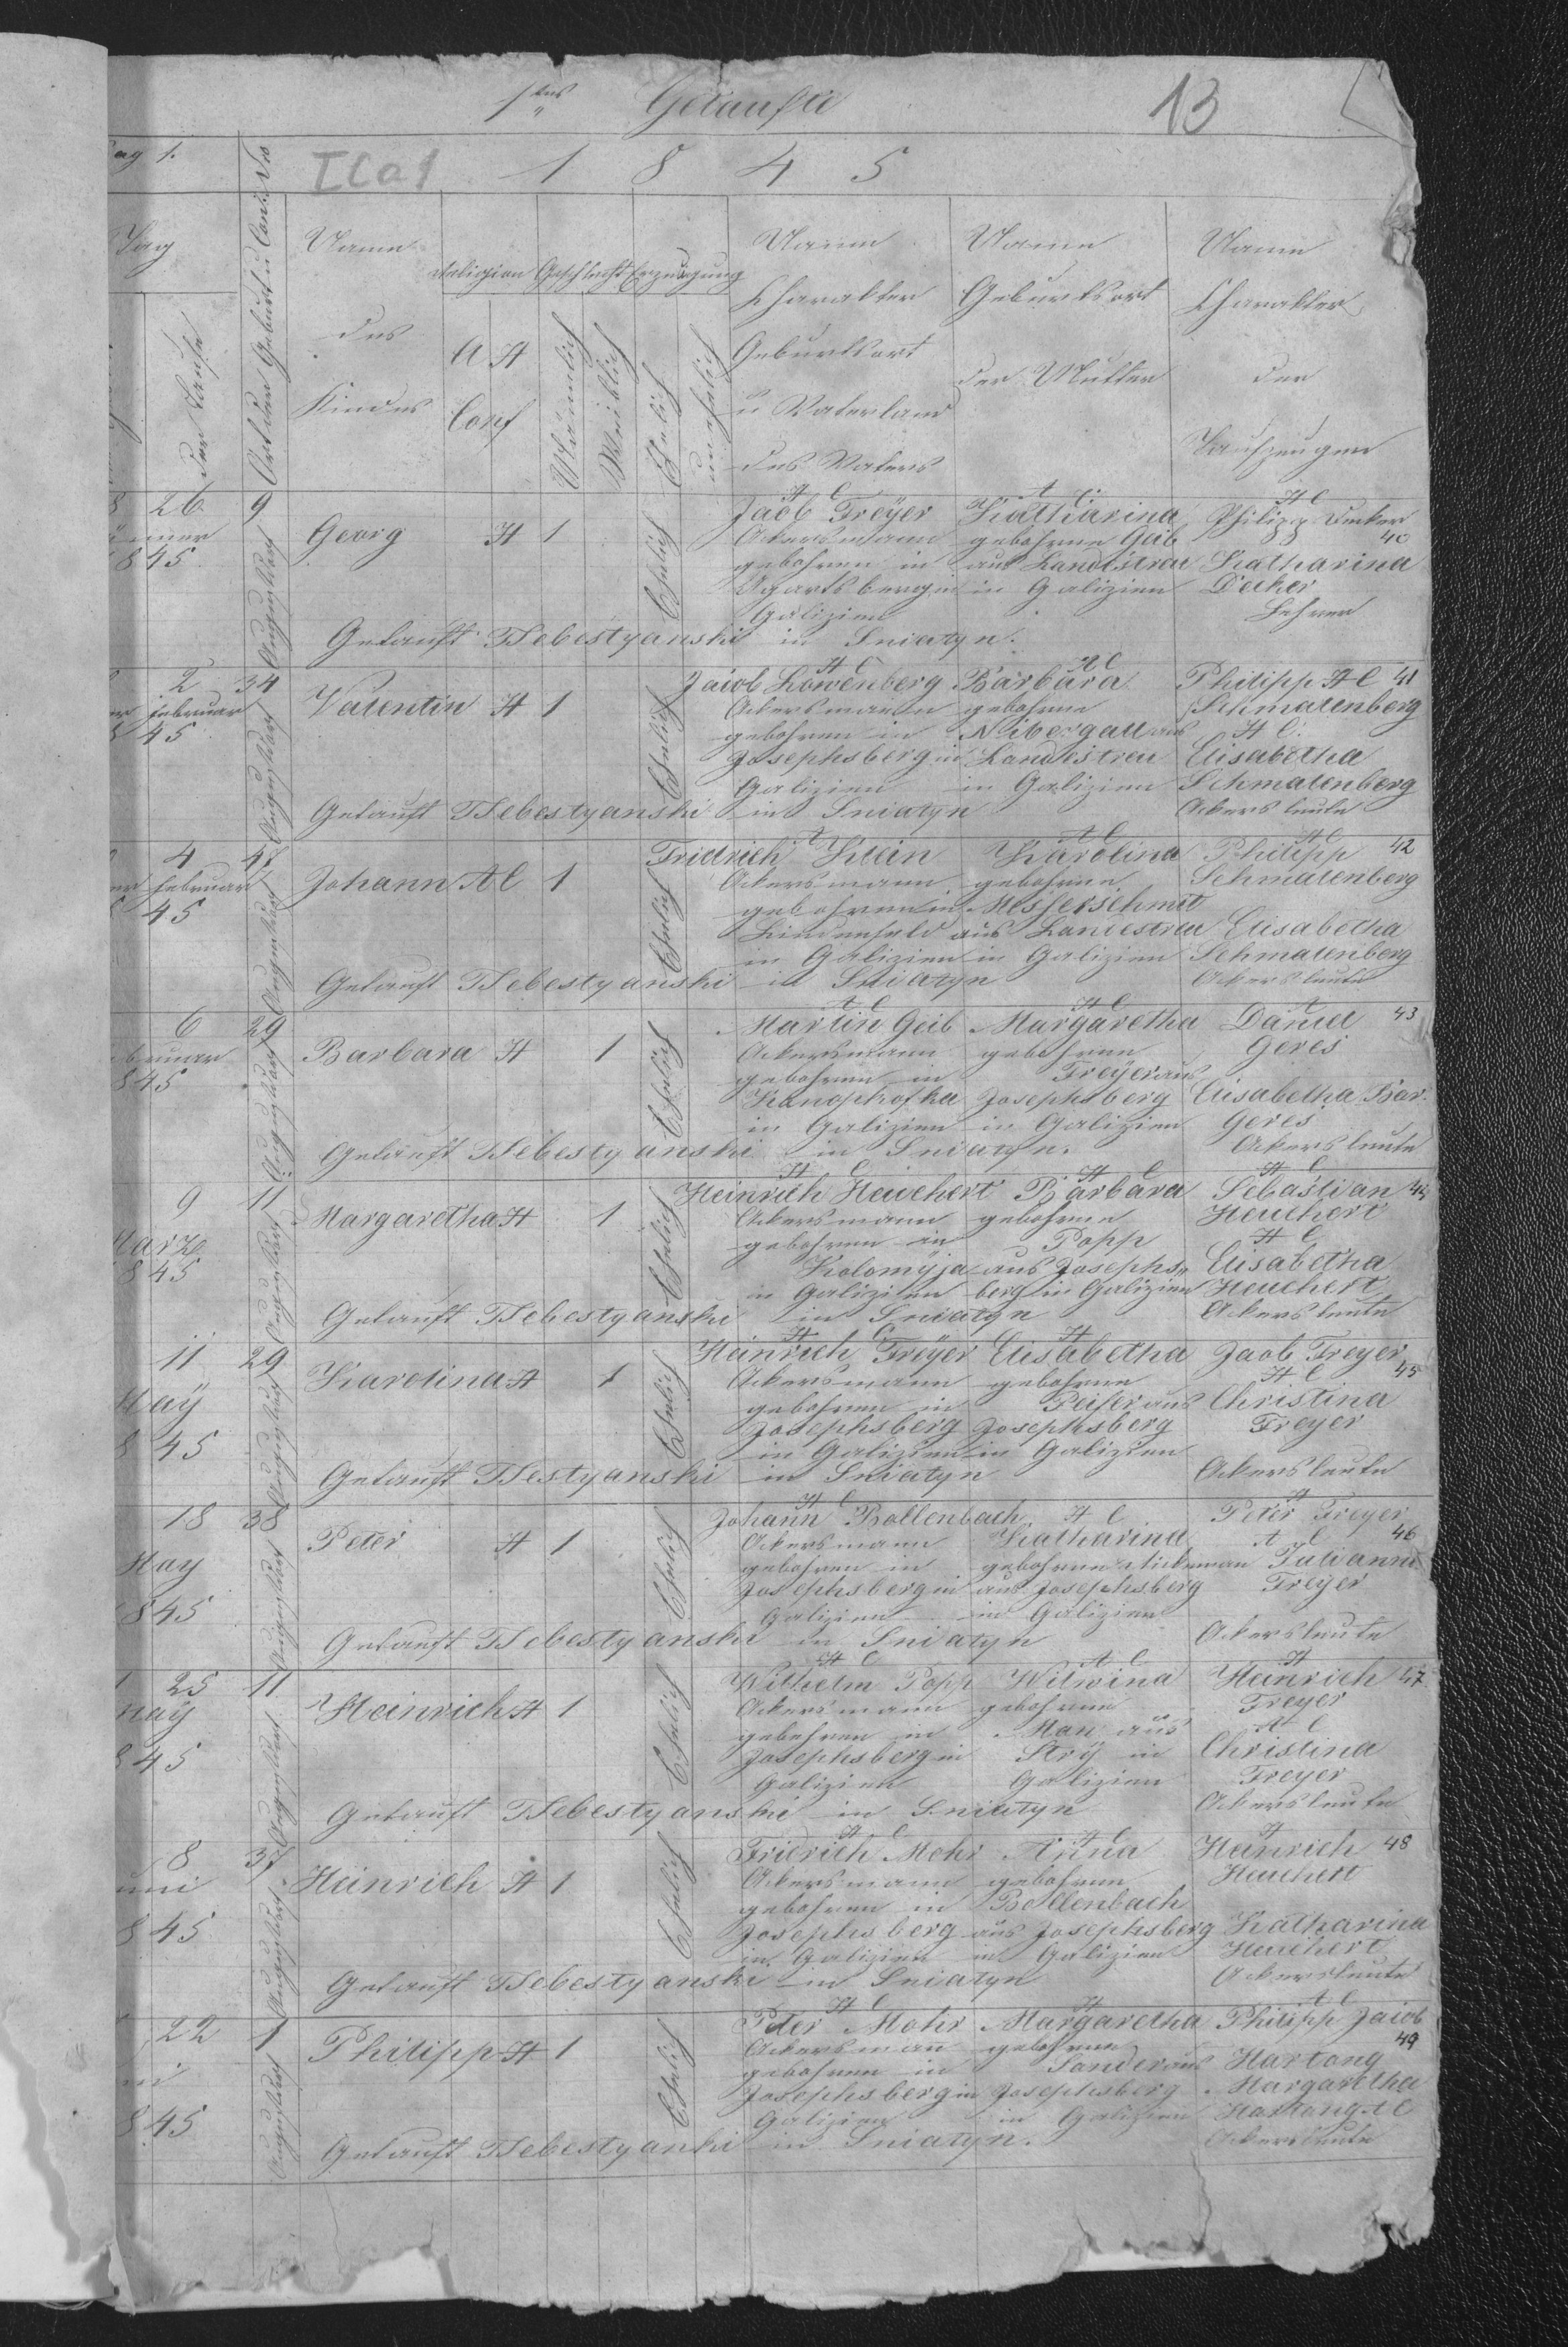 1tens Getaufte 13
Tag 1.
ICa1 1 8 4 5
Tag
der Taufe
Name
des
Kindes
Religion Geschlecht Erzeugung
A H
Conf
Mänlich
Weiblich
Ehelich
unehelich
Name
Charakter
Geburtsort
u Vaterland
des Vaters
Name
Geburtsort
der Mutter
Name
Charakter
der
Taufzeugen
26 9
845
Georg H 1
Ehelich
H C
Jacob Freÿer
Ackersmann
gebohren in
Ugartsberg in
Galizien
A C
Katharina
gebohrene Geib
aus Landistreu
in Galizien
H C
Philipp Decker
40
Katharina
Decker
Lehrer
Getauft TSebestyanski in Sniatyn.
2 34
Februar
45
Valentin H 1
Ehelich
H C
Jacob Löwenberg
Ackersmann
gebohren in
Josephsberg in
Galizien
A C
Barbara
gebohrene
Nibergall aus
Landestreu
in Galizien
Philipp H C 41
Schmalenberg
H C
Elisabetha
Schmalenberg
Ackersleute
Getauft TSebestyanski in Sniatyn
4 47
Februar
45
Johann A C 1
Ehelich
A
Fridrich Klein
Ackersmann
gebohren in
Lindenfeld
in Galizien
A C
Karolina
gebohrene
Messerschmit
aus Landestreu
in Galizien
H C
Philipp 42
Schmalenberg
Elisabetha
Schmalenberg
Ackersleute
Getauft TSebestyanski in Sniatyn
6 29
bruar
845
Barbara H 1
Ehelich
A C
Martin Geib
Ackersmann
gebohren in
Konophofka
in Galizien
H C
Margaretha
gebohrene
Freÿer aus
Josephsberg
in Galizien
A
Daniel 43
Geres
Elisabetha Bar.
Geres
Ackersleute
Getauft TSebestyanski in Sniatyn.
9 11
März
845
Margaretha H 1
Ehelich
H C
Heinrich Heuchert
Ackersmann
gebohren in
Kolomÿja
in Galizien
H C
Barbara
gebohrene
Popp
aus Josephs„
berg in Galizien
H C
Sebastian 44
Heuchert
H C
Elisabetha
Heuchert
Ackersleute
Getauft TSebestyanski in Sniatyn
11 29
Maÿ
845
Karolina H 1
Ehelich
H C
Heinrich Freÿer
Ackersmann
gebohren in
Josephsberg
in Galizien
H
Elisabetha
gebohrene
Peifer aus
Josephsberg
in Galizien
Jacob Freyer
H C 45
Christina
Freyer
Ackersleute
Getauft TSestyanski in Sniatyn
18 38
May
845
Peter H 1
Ehelich
H C
Johann Bollenbach
Ackersmann
gebohren in
Josephsberg in
Galizien
H C
Katharina
gebohrene
aus Josephsberg
in Galizien
H
Peter Freyer
A C 46
Julianna
Freÿer
Ackersleute
Getauft TSebestyanski in Sniatyn
25 11
may
845
Heinrich H 1
Ehelich
H C
Wilhelm Popp
Ackersmann
gebohren in
Josephsberg in
Galizien
A C
Wilwina
gebohrene
Man aus
Strÿ in
Galizien
H
Heinrich 47
Freyer
A C
Christina
Freyer
Ackersleute
Getauft TSebestyanski in Sniatyn
8 37
uni
845
Heinrich H 1
Ehelich
H C
Fridrich Mohr
Ackersmann
gebohren in
Josephsberg
in Galizien
H C
Anna
gebohrene
Bollenbach
aus Josephsberg
in Galizien
H
Heinrich 48
Heuchert
Katharina
Heuchert
Ackersleute
Getauft TSebestyanski in Sniatyn
22 1
ni
845
Philipp H 1
Ehelich
H C
Peter Mohr
Ackersman
gebohren in
Josephsberg in
Galizien
H
Margaretha
gebohrene
Sander aus
Josephsberg
in Galizien
A C
Philipp Jacob
49
Hartong
Margaretha
Hartong A C
Ackersleute
Getauft TSebestyanki in Sniatyn.